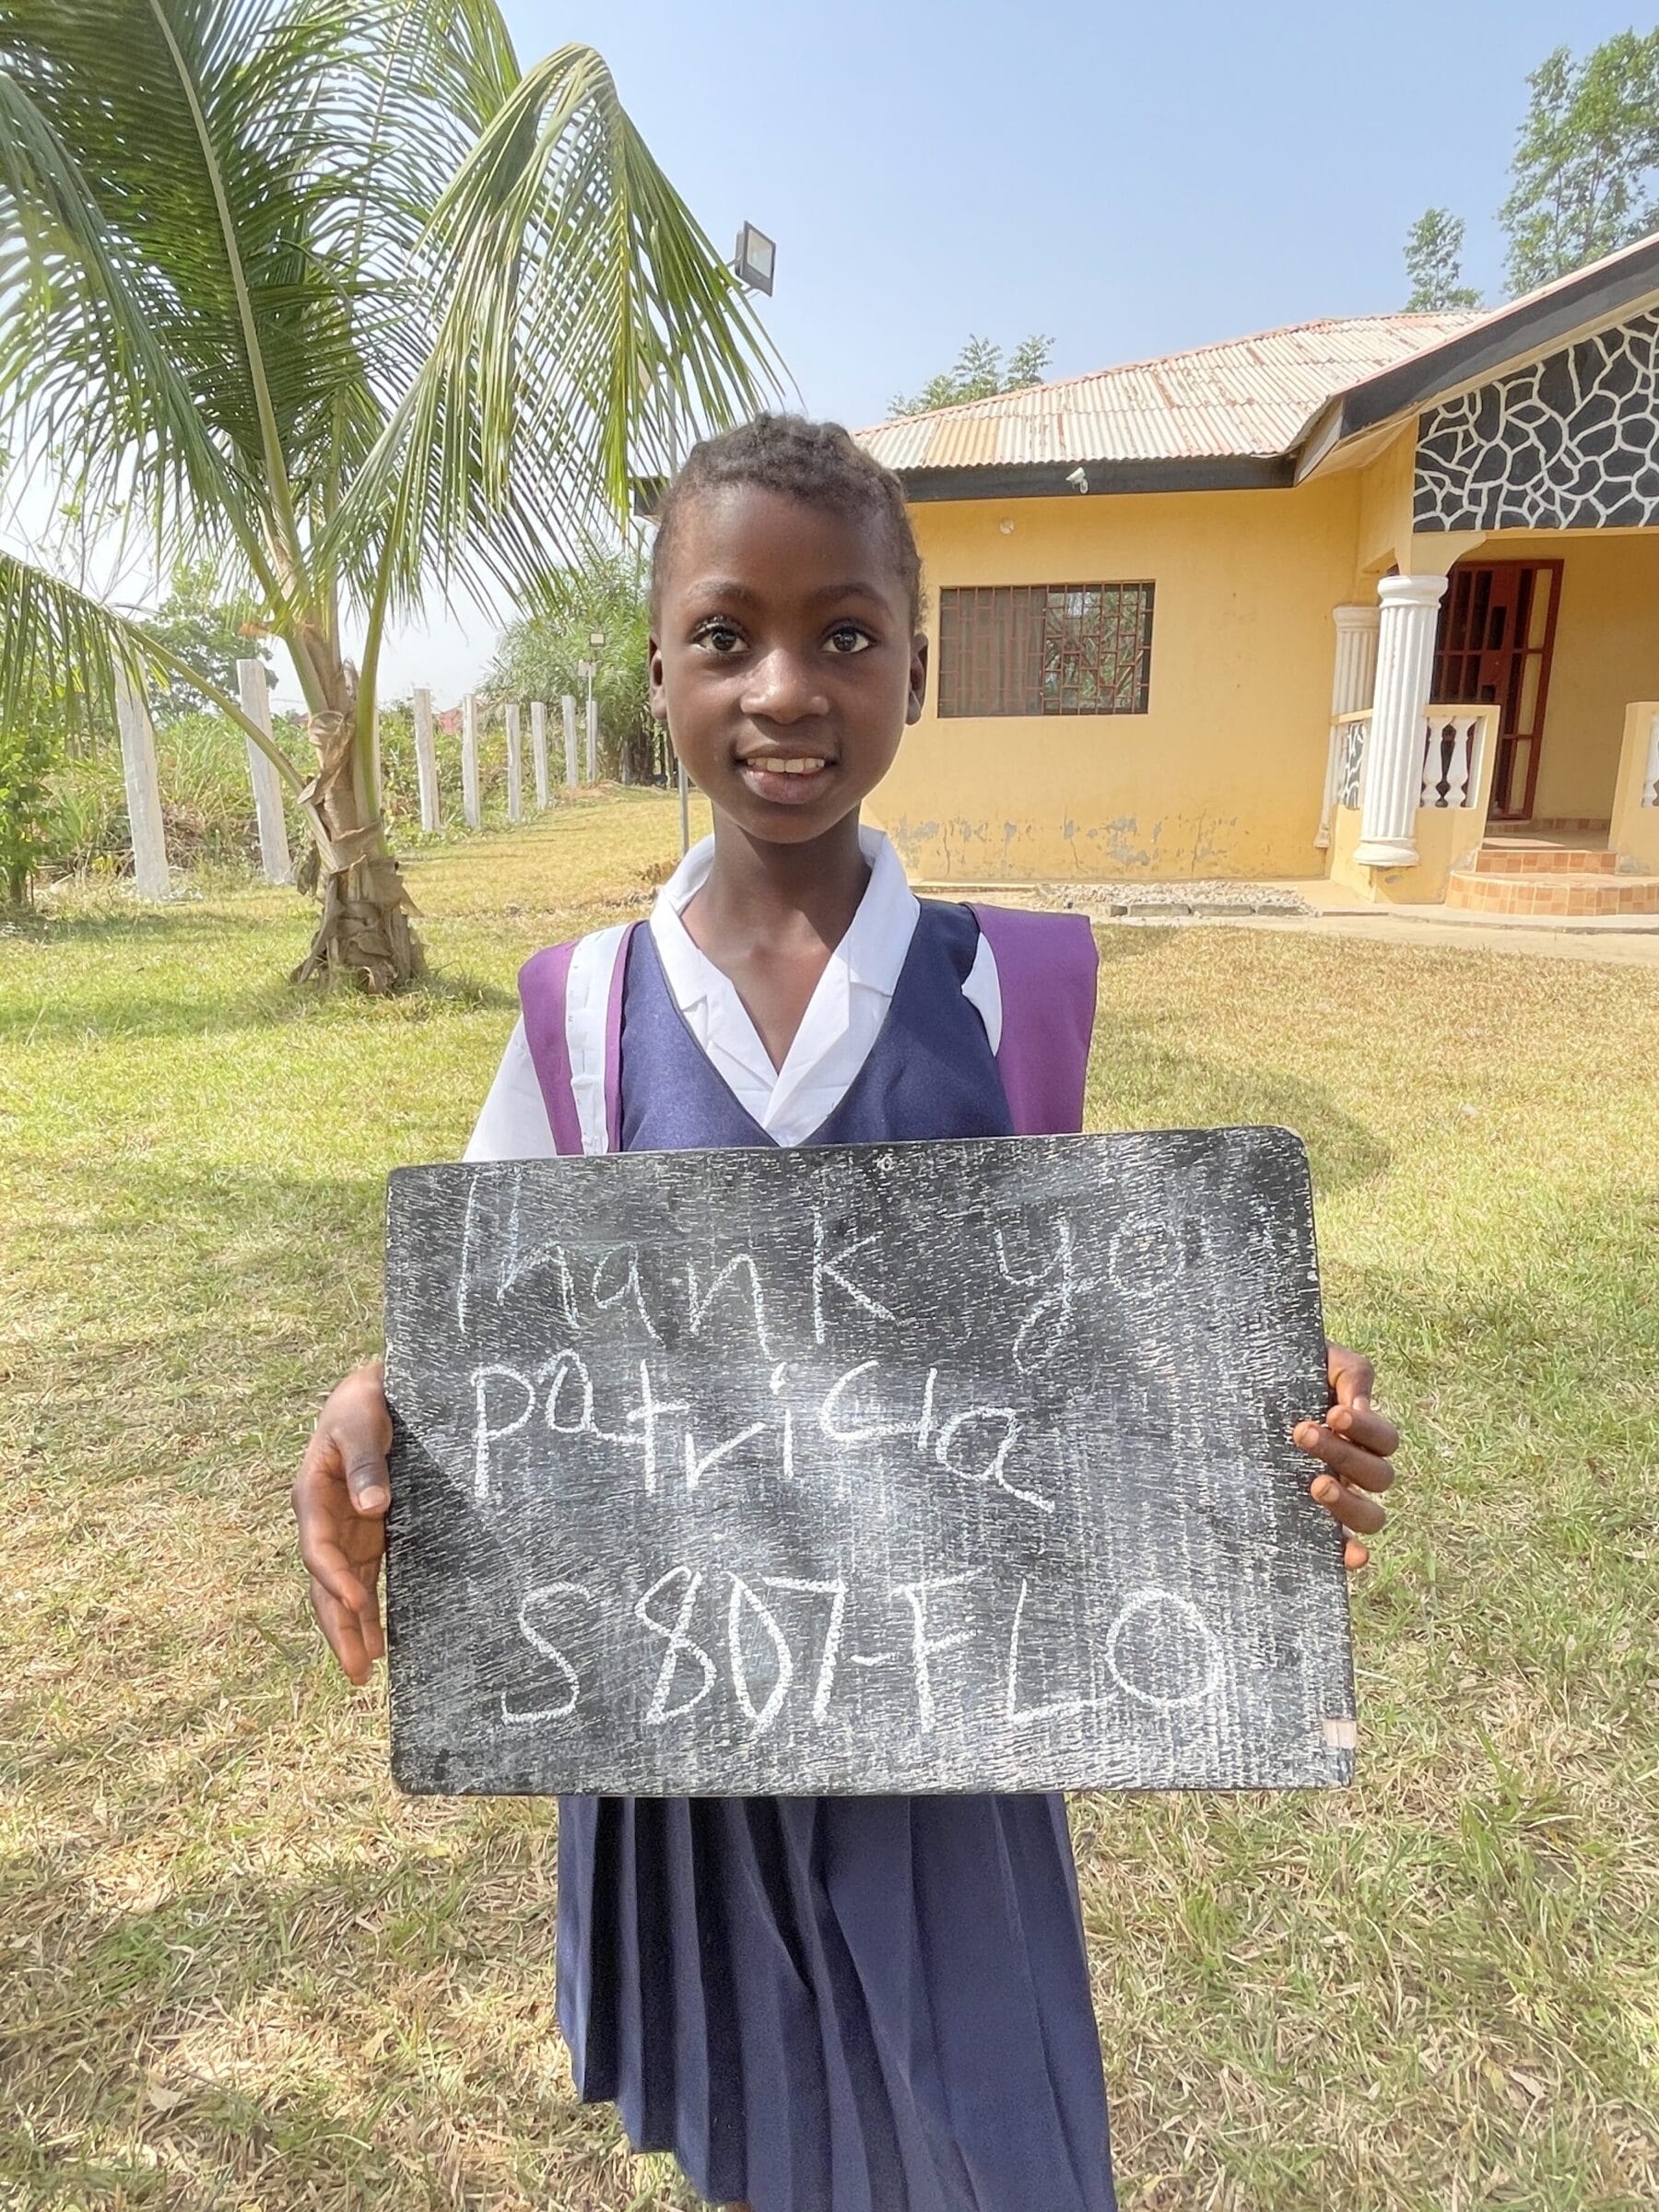 Thank yo
patricia
S807-FLO